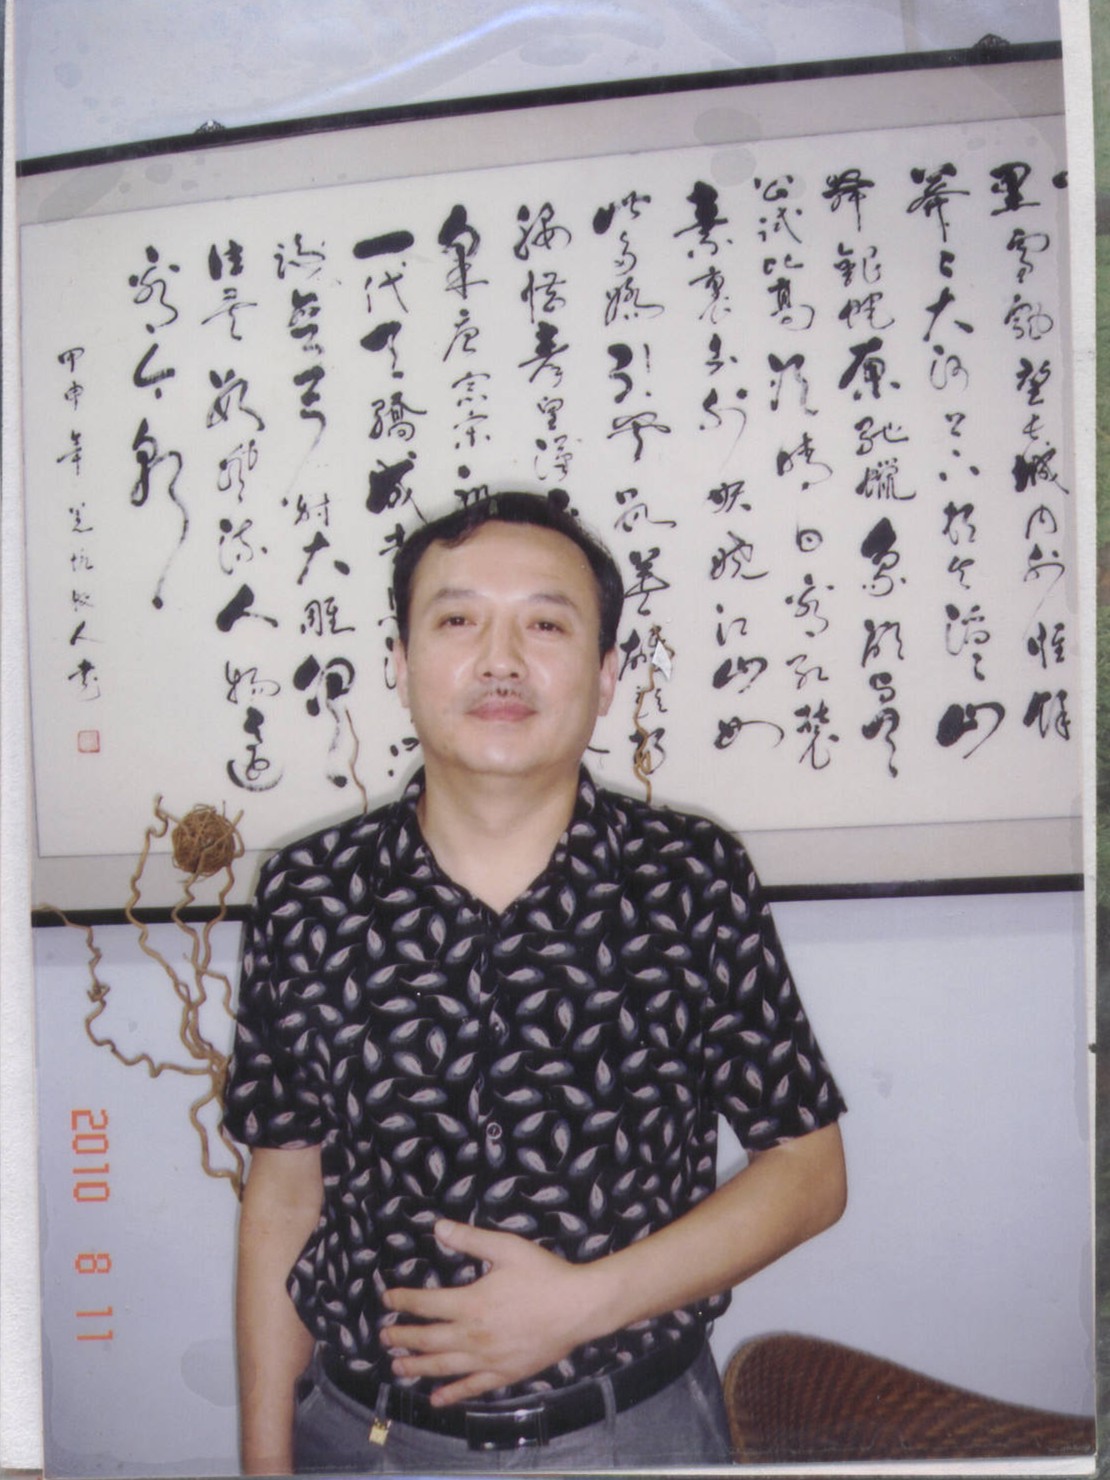 里雪飘望长城内外惟馀
莽々大河上下顿失滔々山
舞银蛇原驰蠟象欲与天
公试比高须晴日看红装
素裹分外妖娆江山如
此多娇引无数英雄竞折
腰惜秦皇汉
采唐宗宋祖
一代天驕成吉思汗只
识弯弓射大雕俱
往矣数风流人物还
看今朝
甲申年 人书
2010 8 11